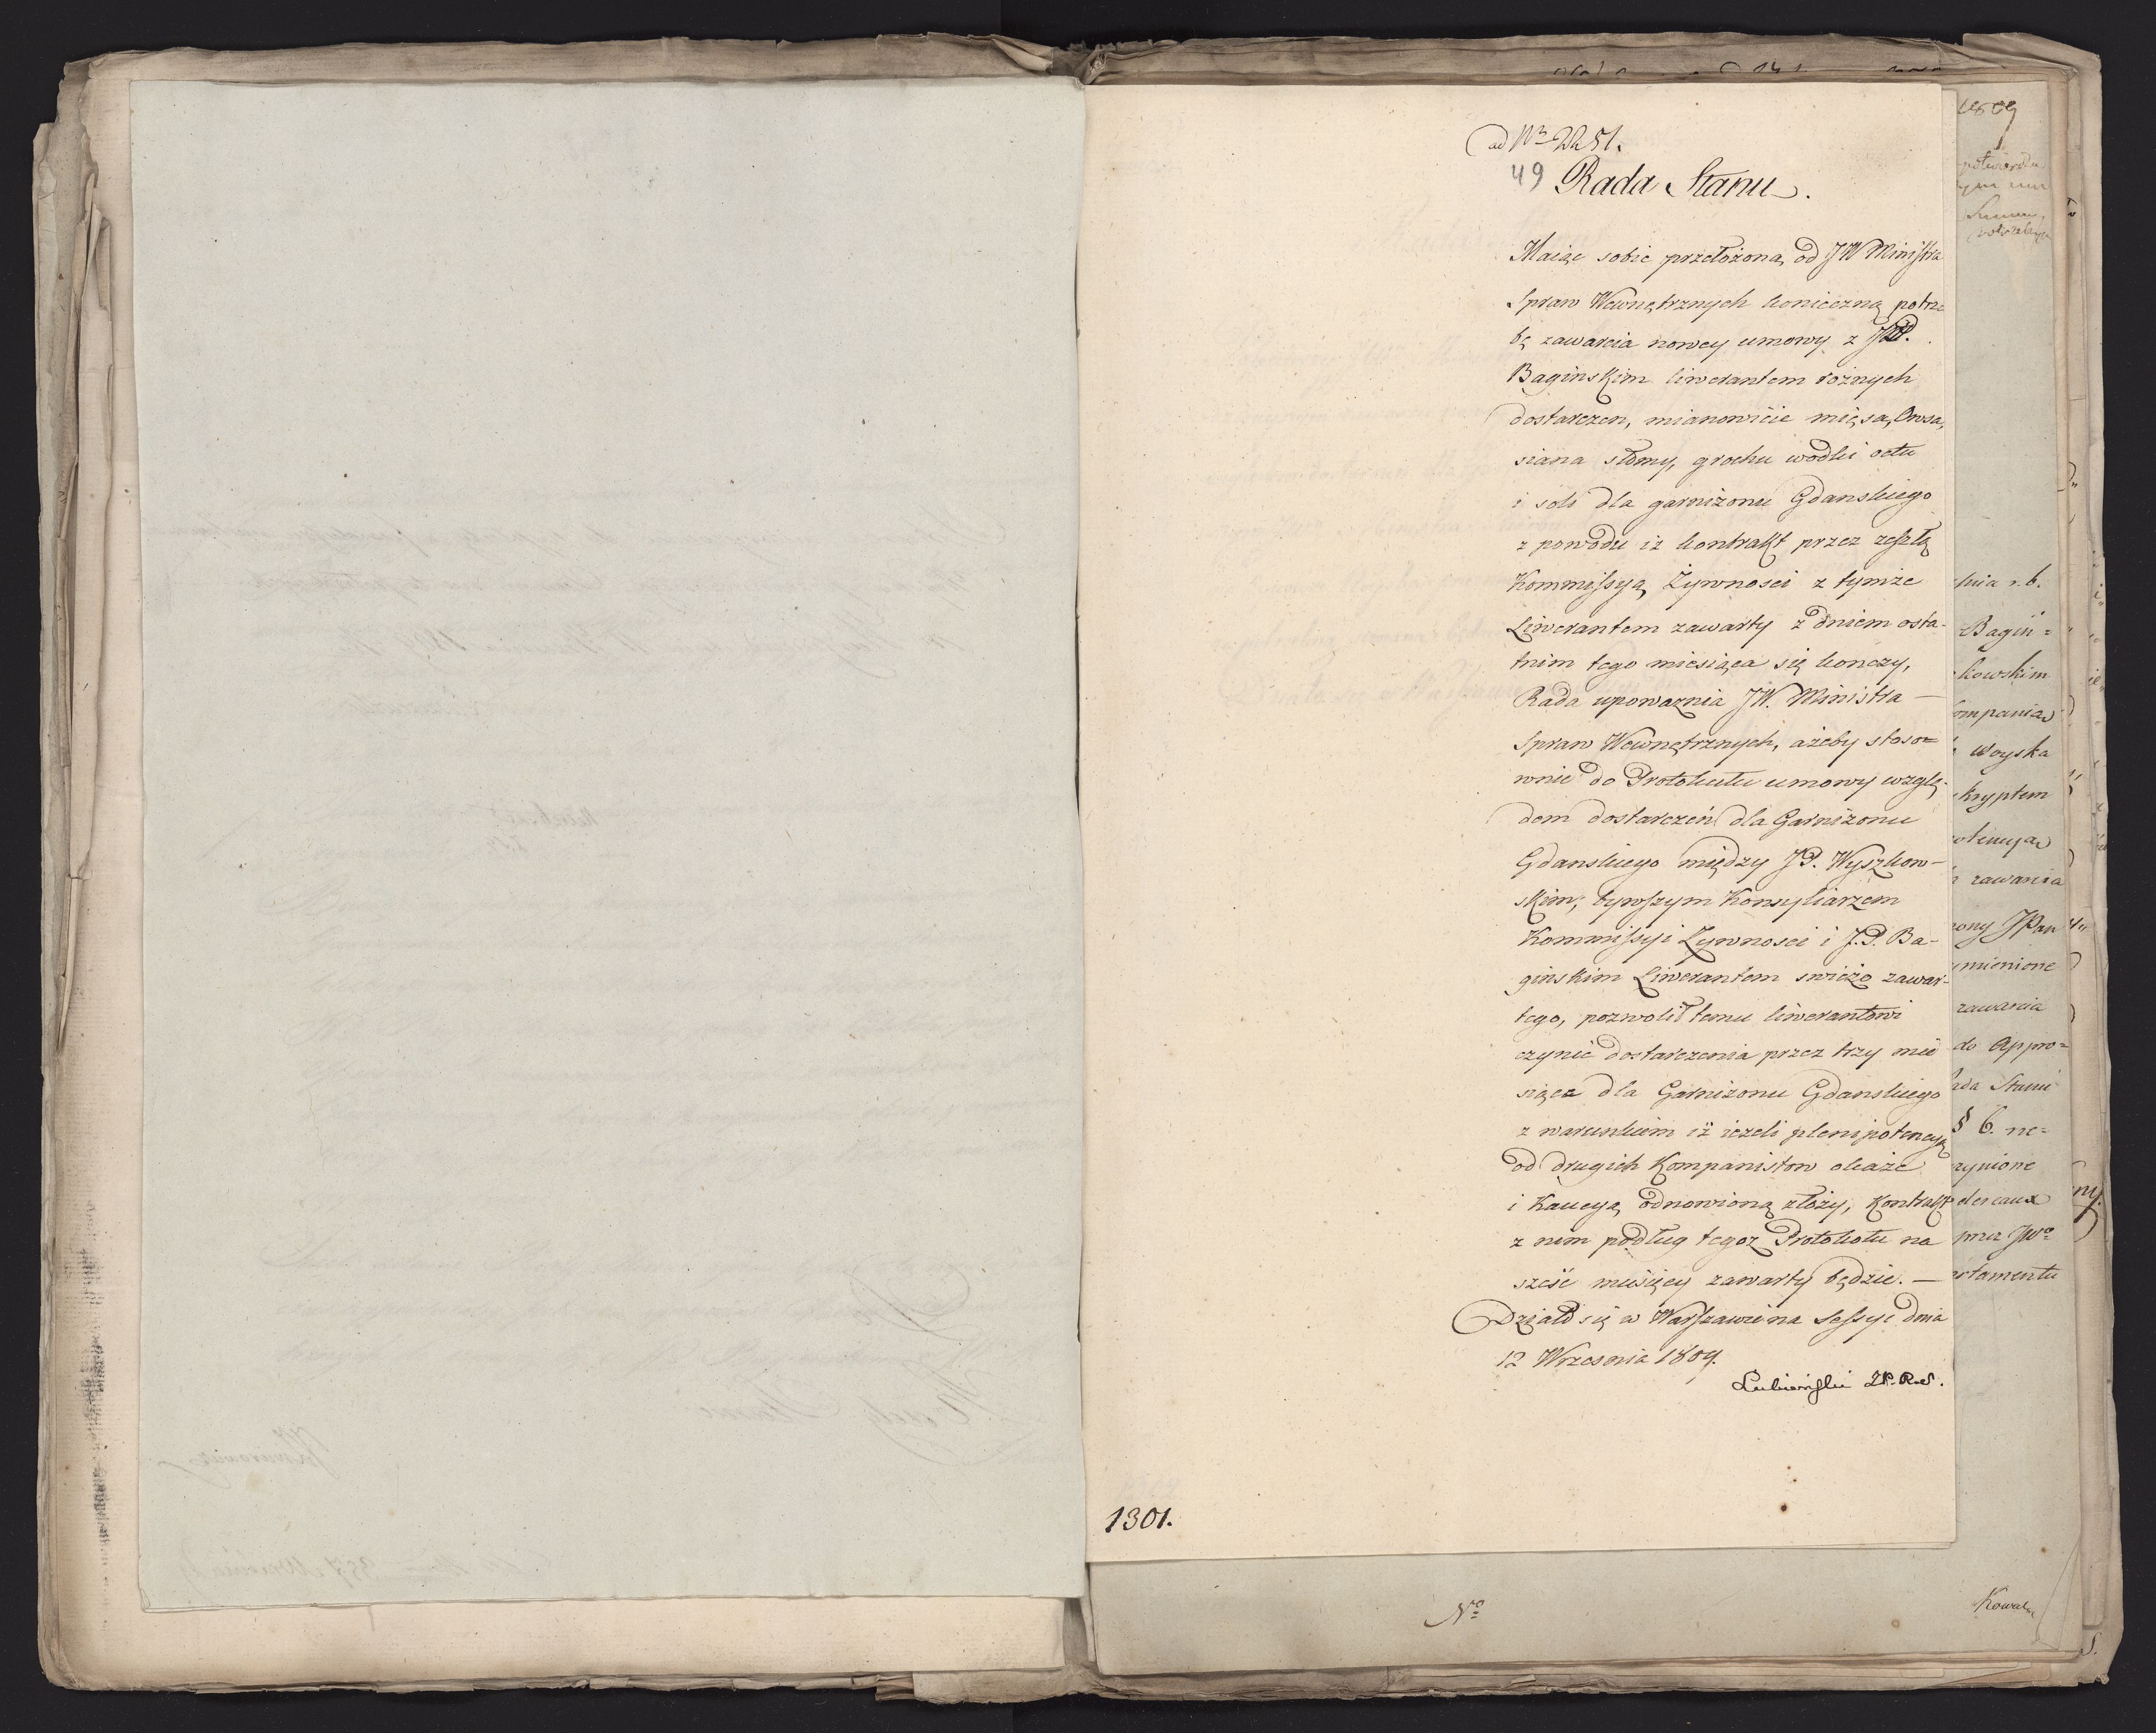 ad Nr 2251.
49 Rada Stanu.
Maiąc sobie przełożoną od JW Ministra
Spraw Wewnętrznych konieczną potrze
bę zawarcia nowey umowy z JP.
Baginskim liwerantem rożnych
dostarczen, mianowicie mięsa, Owsa,
siana słomy, grochu wodki octu
i soli dla garnizonu Gdanskiego
z powodu iż kontrakt przez zeszłą
Kommissyą Żywnosci z tymże
Liwerantem zawarty z dniem osta-
tnim tego miesiąca się konczy,
Rada upowaznia JW. Ministra —
Spraw Wewnętrznych, ażeby stoso=
wnie do Protokułu umowy wzglę-
dem dostarczeń dla Garnizonu
Gdanskiego między JP. Wyszkow-
skim, bywszym Konsyliarzem
Kommissyi Żywnosci i J.P. Ba-
ginskim Liwerantem swieżo zawar-
tego, pozwolił temu liwerantowi
czynić dostarczenia przez trzy mie
siące dla Garnizonu Gdanskiego
z warunkiem iż ieżeli plenipotencyą
od drugich Kompanistow okaże
i Kaucyą odnowioną złoży, Kontrakt
z nim podług tegoz Protokołu na
sześć miesięcy zawarty będzie. —
Działo się w Warszawie na Sessyi dnia
12 Wrzesnia 1809.
Lubienski ZP. R.S.
1301.
No
1809
Bagiń=
kowskim
woyska
zawarcia
JPan
mienione
zawarcia
do Appro=
§ 6. ne=
przez JWo